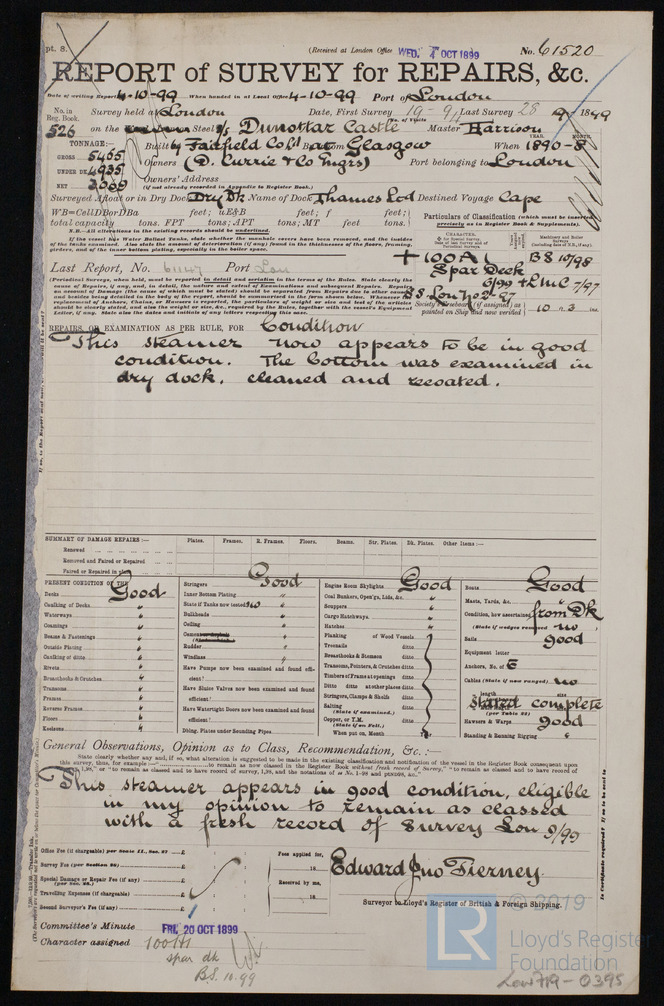 pt. 8.
(Received at London Office WED. 4 OCT 1899
No. 61520
REPORT of SURVEY for REPAIRS, &c.
Date of writing Report 4-10-99 When handed in at Local Office 4-10-99 Port of London
No. in Reg. Book. Survey held at London Date, First Survey 19-9 Last Survey 28 1899
526 on the Steel S/S Dunottar Castle Master Harrison
TONNAGE:— Built by Fairfield Co Ld at Glasgow When 1890-8
GROSS 5465 Owners (D. Currie & Co Mgrs) Port belonging to London
UNDER DK 4935 Owners' Address
NET 3069 (If not already recorded in Appendix to Register Book.)
Surveyed Afloat or in Dry Dock Dry Dk Name of Dock Thames Ltd Destined Voyage Cape
WB=CellDBorDBa feet; uE&B feet; f feet;
total capacity tons. FPT tons; APT tons; MT feet tons.
Particulars of Classification (which must be inserted precisely as in Register Book & Supplements).
N.B.—All alterations in the existing records should be underlined.
+100A1 BS 10/98
Spar Deck
6/99 +LMC 7/97
SS Lon No 2-97
Last Report, No. 61147 Port Lon
10 3
REPAIRS, OR EXAMINATION AS PER RULE, FOR Condition
This steamer now appears to be in good
condition. The bottom was examined in
dry dock, cleaned and recoated.
SUMMARY OF DAMAGE REPAIRS :— Plates. Frames. R. Frames. Floors. Beams. Str. Plates. Bh. Plates. Other Items :—
Renewed
Removed and Faired or Repaired
Faired or Repaired in place
PRESENT CONDITION OF THE
Decks Good
Caulking of Decks "
Waterways "
Coamings "
Beams & Fastenings "
Outside Plating "
Caulking of ditto "
Rivets "
Breasthooks & Crutches "
Transoms "
Frames "
Reverse Frames "
Floors "
Keelsons "
Stringers Good
Inner Bottom Plating "
State if Tank now tested no
Bulkheads "
Ceiling "
Rudder "
Windlass "
Have Pumps now been examined and found efficient?
Have Sluice Valves now been examined and found efficient?
Have Watertight Doors now been examined and found efficient?
Dblng. Plates under Sounding Pipes
Engine Room Skylights Good
Coal Bunkers, Open'gs, Lids, &c. "
Scuppers "
Cargo Hatchways "
Hatches "
Planking of Wood Vessels
Treenails ditto
Breasthooks & Stemson ditto
Transoms, Pointers, & Crutches ditto
Timbers of Frame at openings ditto
Ditto ditto at other places ditto
Stringers, Clamps & Shelfs ditto
Salting (State if examined.) ditto
Copper, or Y.M. (State if on Felt.) ditto
When put on, Month
Boats Good
Masts, Yards, &c. "
Condition, how ascertained from Dk
(State if wedges removed) no
Sails good
Equipment letter
Anchors, No. of 6
Cables (State if now ranged) no
length size
stated complete
(per Table 22)
Hawsers & Warps good
Standing & Running Rigging "
General Observations, Opinion as to Class, Recommendation, &c. :—
This steamer appears in good condition, eligible
in my opinion to remain as classed
with a fresh record of Survey Lon 9/99
Office Fee (if chargeable) per Scale II., Sec. 27 £
Survey Fee (per Section 28) £
Special Damage or Repair Fee (if any) £
(per Sec. 28.)
Travelling Expenses (if chargeable) £
Second Surveyor's Fee (if any) £
Fees applied for,
18
Received by me,
18
Edward Jno Tierney
Surveyor to Lloyd's Register of British & Foreign Shipping.
Committee's Minute FRI. 20 OCT 1899
Character assigned 100A1
spar dk
B.S. 10.99
LR
© 2019
Lloyd's Register
Foundation
Low719-0395